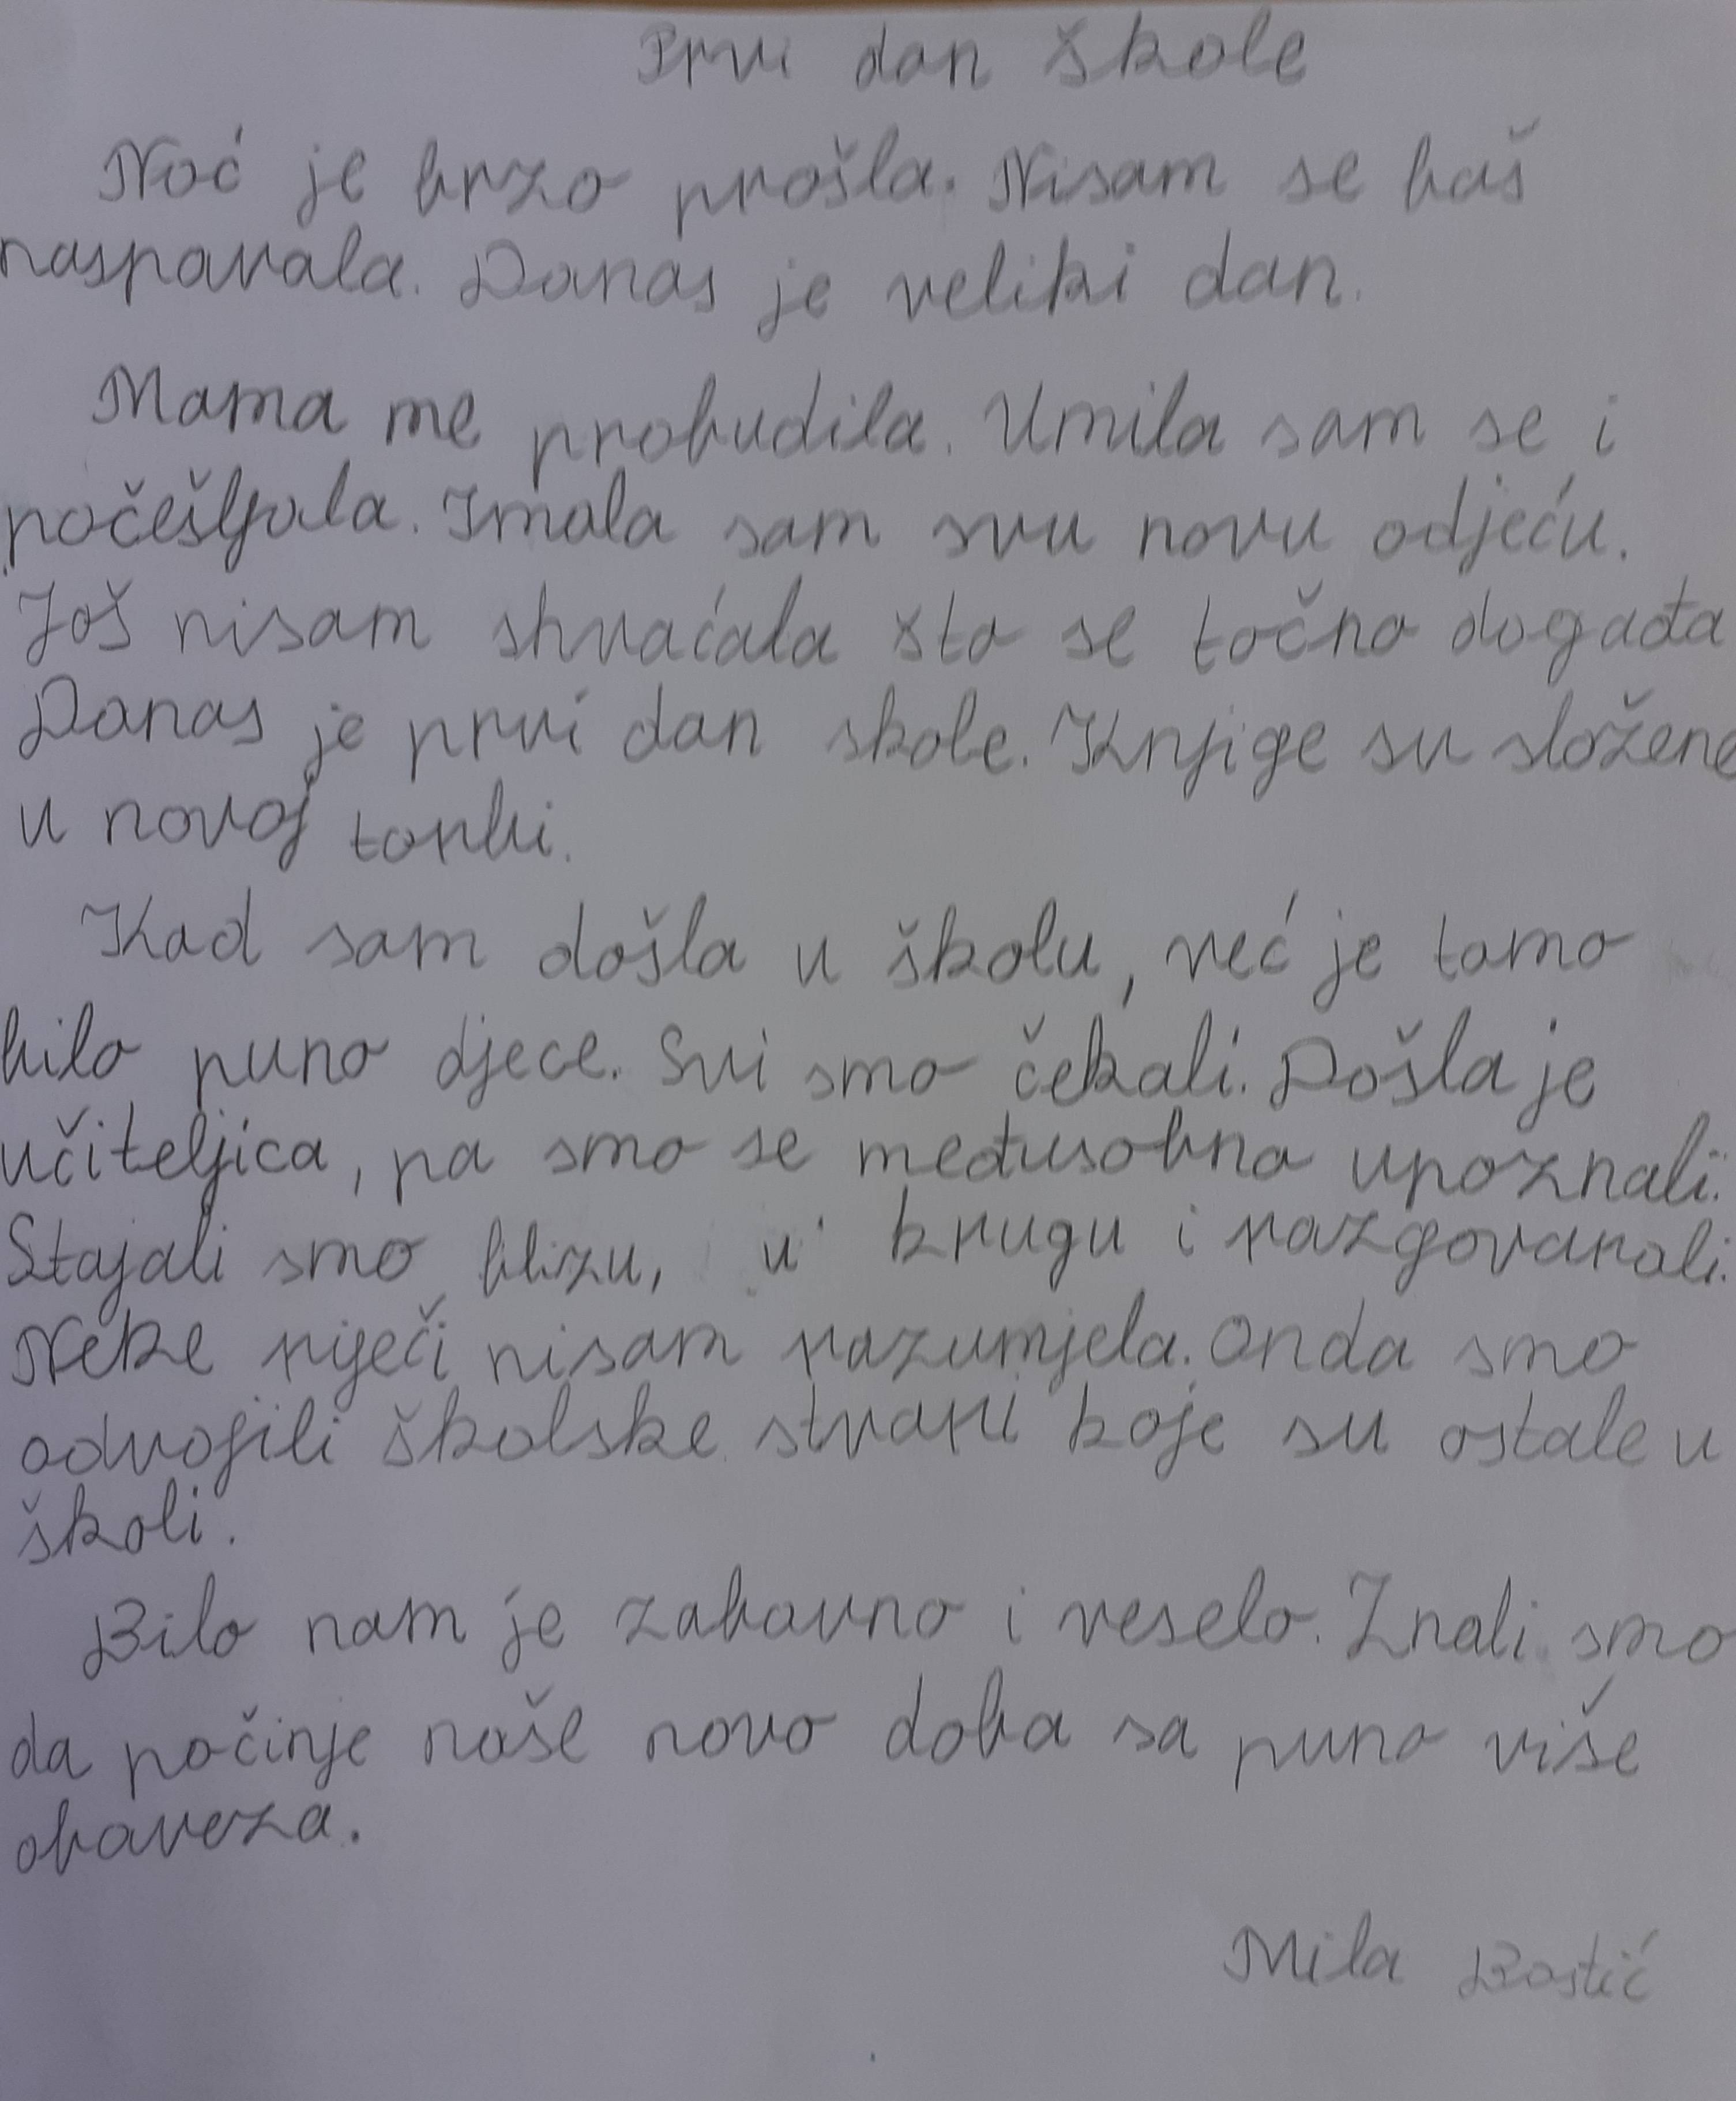 Prvi dan škole
Noć je brzo prošla. Nisam se baš
naspavala. Danas je veliki dan.
Mama me probudila. Umila sam se i
počešljala. Imala sam svu novu odjeću.
Još nisam shvaćala što se točno događa
Danas je prvi dan skole. Knjige su složene
u novoj torbi.
Kad sam došla u školu, već je tamo
bilo puno djece. Svi smo čekali. Došla je
učiteljica, pa smo se međusobno upoznali.
Stajali smo blizu, u krugu i razgovarali.
Neke riječi nisam razumjela. Onda smo
odvojili školske stvari koje su ostale u
školi.
Bilo nam je zabavno i veselo. Znali smo
da počinje naše novo doba sa puno više
obaveza.
Mila Bastić